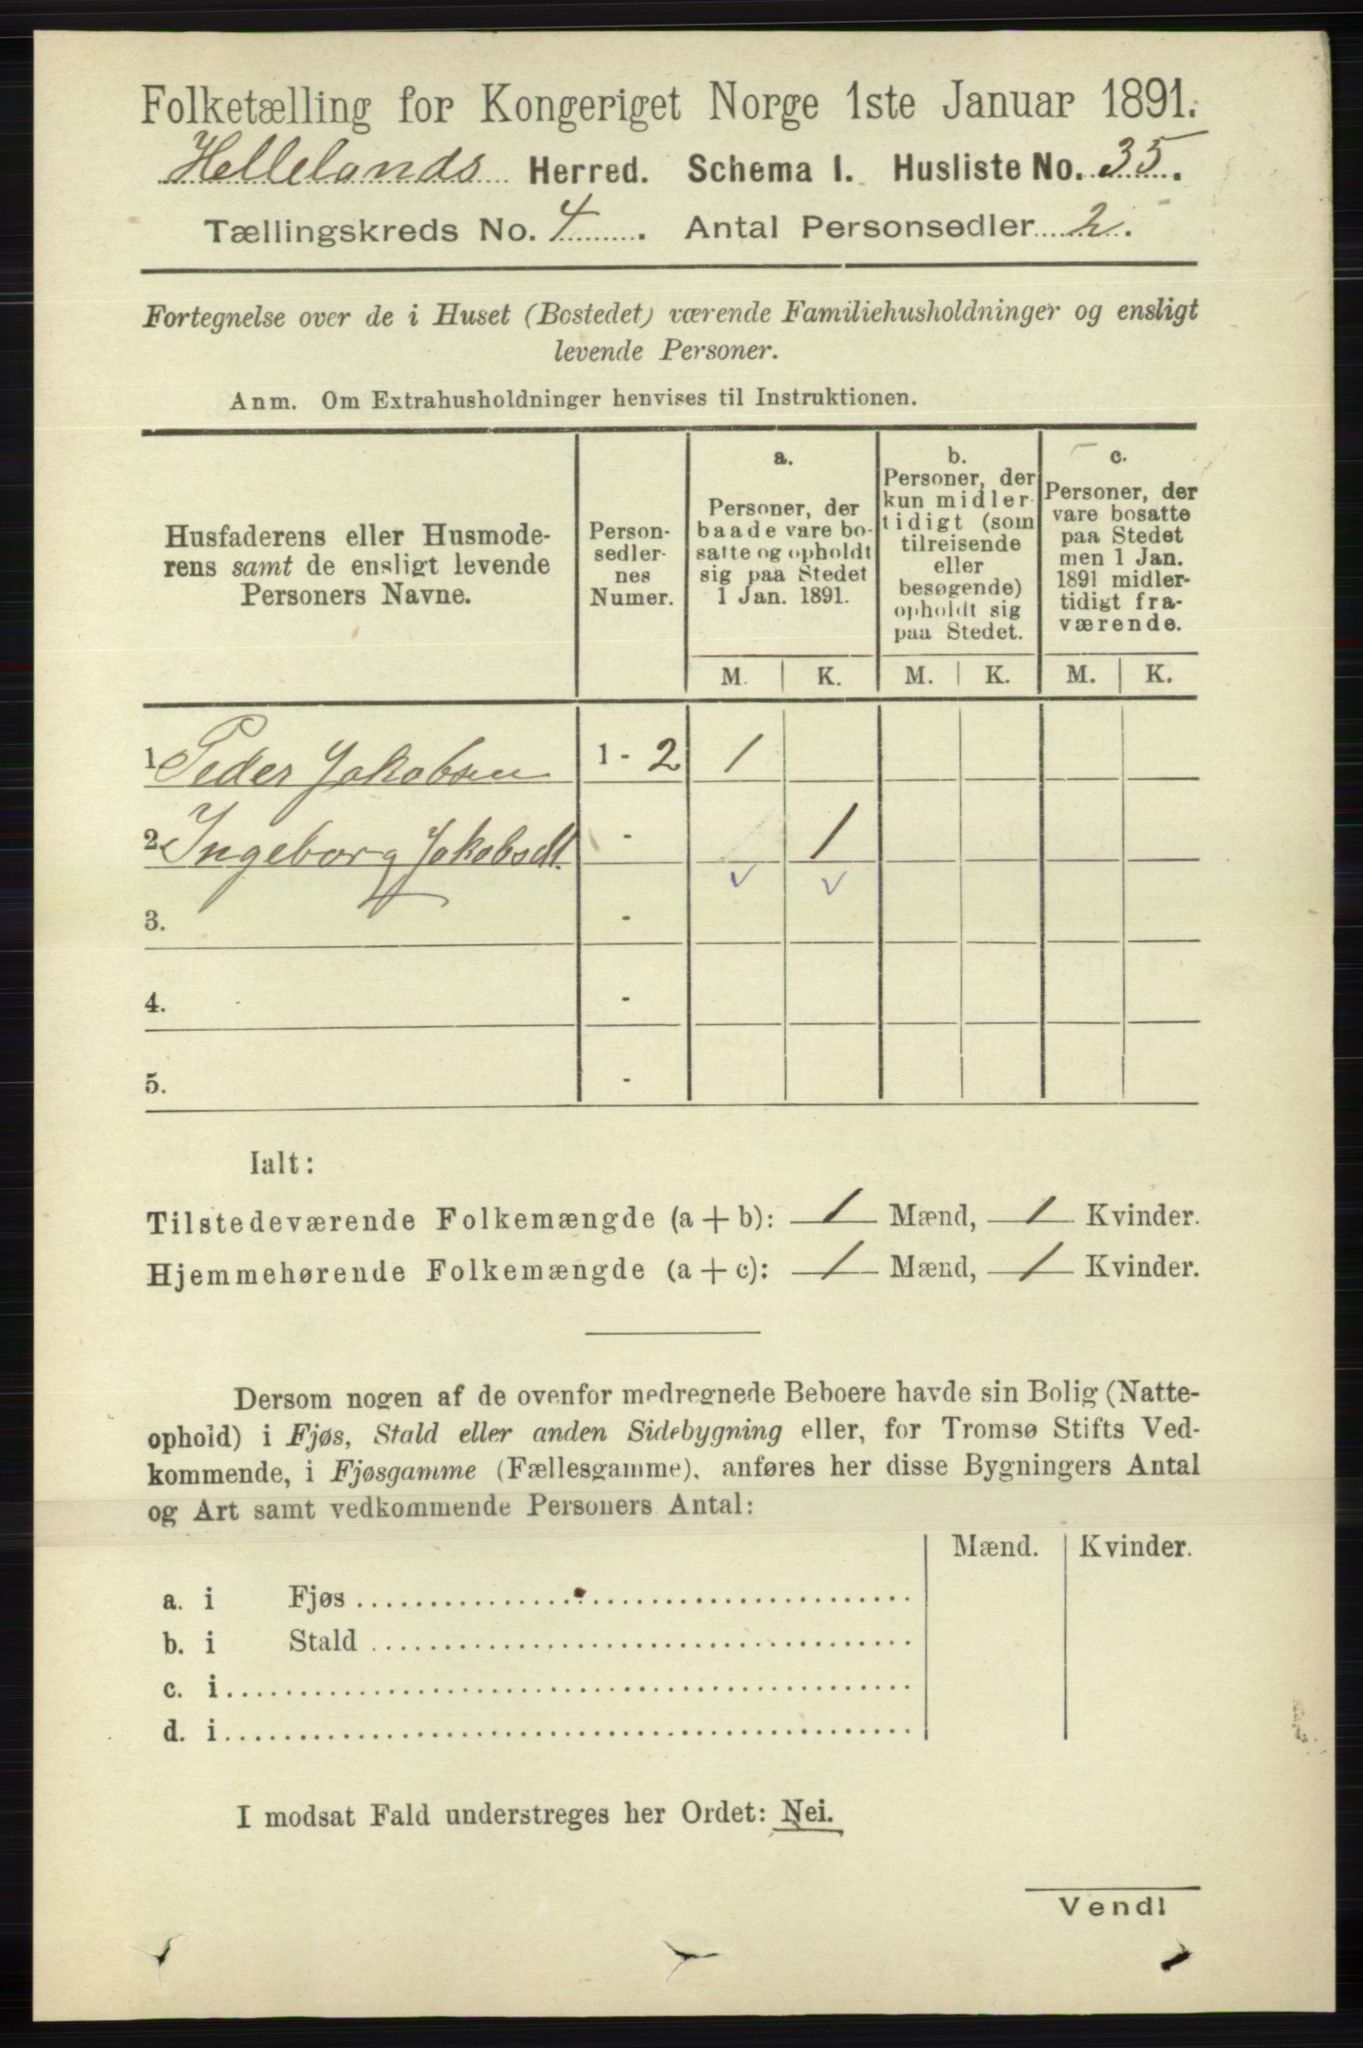 Folketælling for Kongeriget Norge 1ste Januar 1891.
Hellelands Herred. Schema I. Husliste No. 35.
Tællingskreds No. 4. Antal Personsedler 2.
Fortegnelse over de i Huset (Bostedet) værende Familiehusholdninger og ensligt
levende Personer.
Anm. Om Extrahusholdninger henvises til Instruktionen.
Husfaderens eller Husmode-
rens samt de ensligt levende
Personers Navne.
Person-
sedler-
nes
Numer.
a.
Personer, der
baade vare bo-
satte og opholdt
sig paa Stedet
1 Jan. 1891.
b.
Personer, der
kun midler-
tidigt (som
tilreisende
eller
besøgende)
opholdt sig
paa Stedet.
c.
Personer, der
vare bosatte
paa Stedet
men 1 Jan.
1891 midler-
tidigt fra-
værende.
M. K. M. K. M. K.
1 Peder Jakobsen 1 - 2 1
2 Ingeborg Jakobsdt. - 1
v v
3. -
4. -
5. -
Ialt:
Tilstedeværende Folkemængde (a + b): 1 Mænd, 1 Kvinder.
Hjemmehørende Folkemængde (a + c): 1 Mænd, 1 Kvinder.
Dersom nogen af de ovenfor medregnede Beboere havde sin Bolig (Natte-
ophold) i Fjøs, Stald eller anden Sidebygning eller, for Tromsø Stifts Ved-
kommende, i Fjøsgamme (Fællesgamme), anføres her disse Bygningers Antal
og Art samt vedkommende Personers Antal:
Mænd. Kvinder.
a. i Fjøs
b. i Stald
c. i
d. i
I modsat Fald understreges her Ordet: Nei.
Vend!